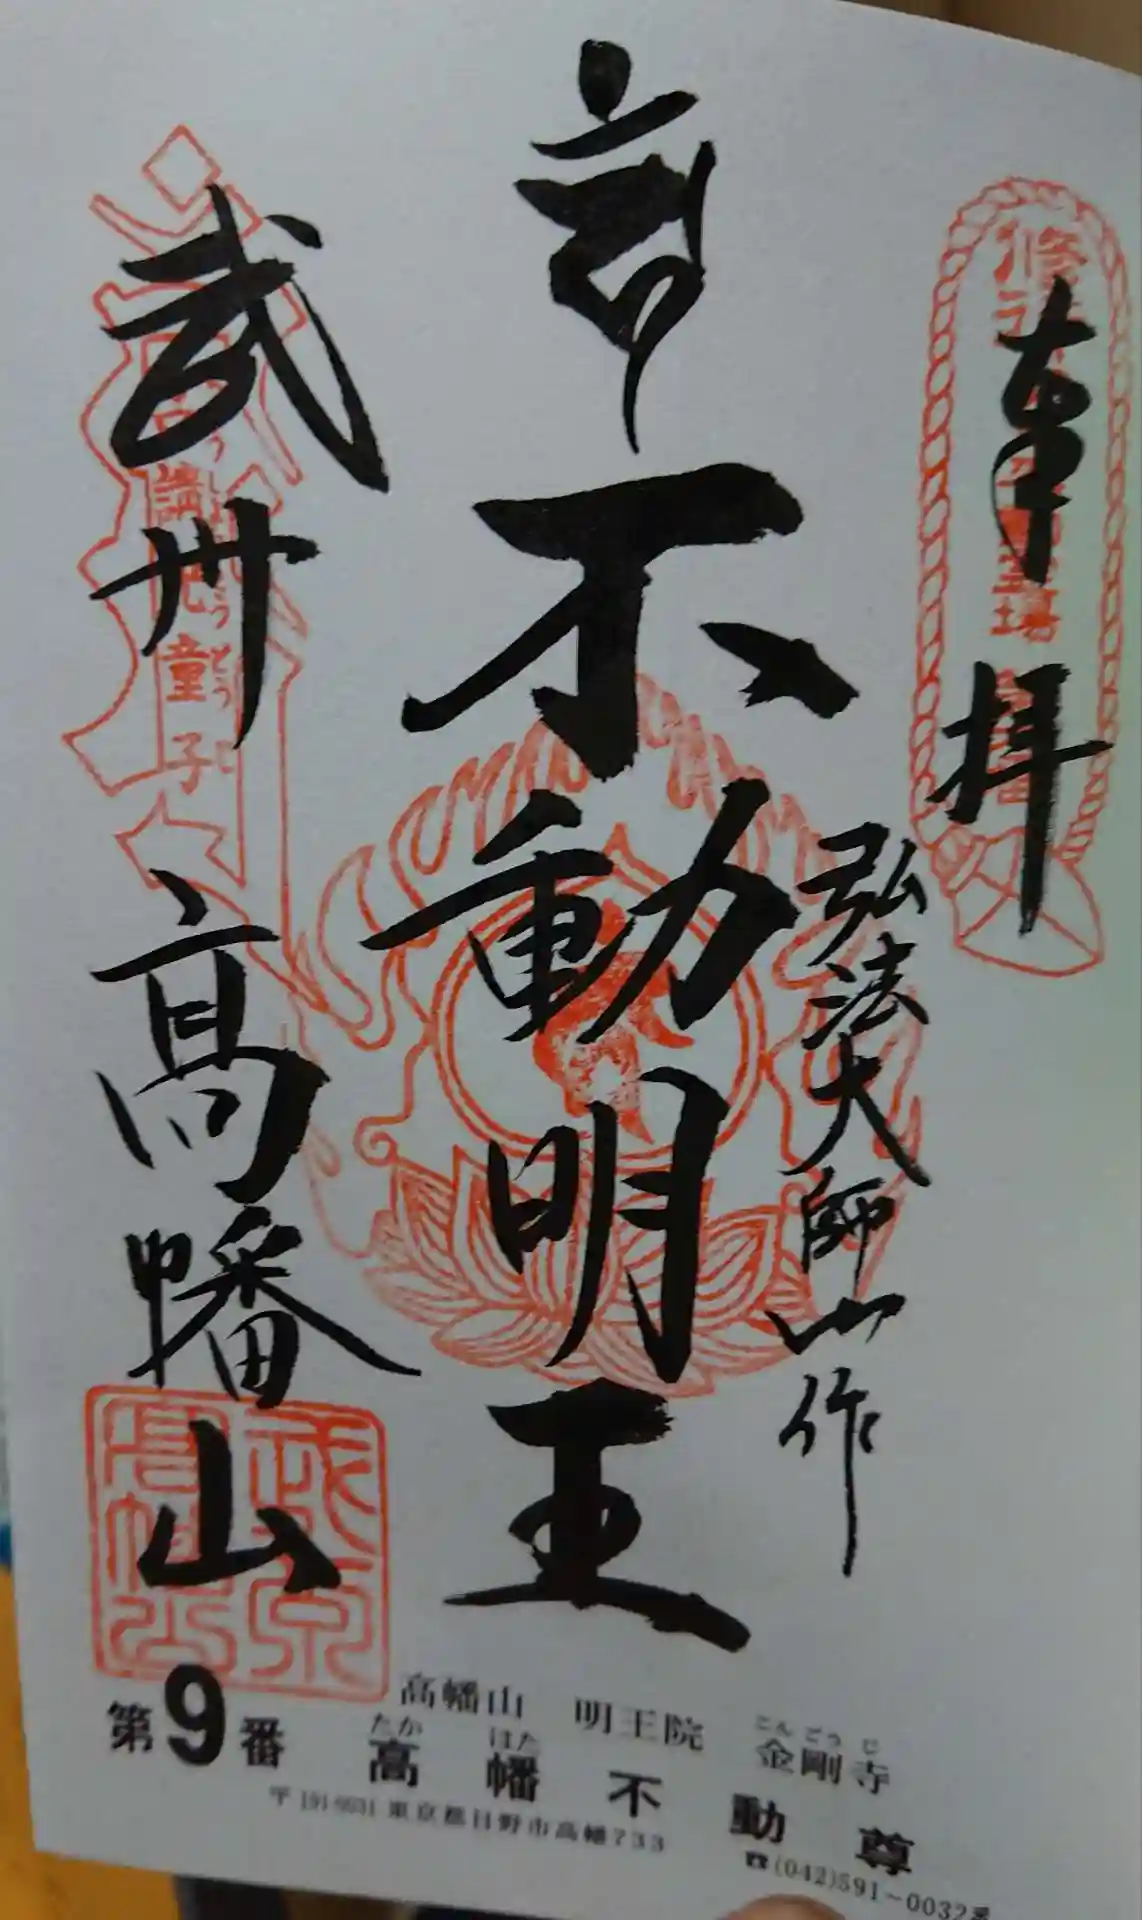 奉拝
弘法大師山作
不動明王
武州高幡山
講
童子
どうじ
第9番
高幡山 明王院 金剛寺
こんごうじ
たかはた
高幡不動尊
東京都日野市高幡733
☎(042)591-0032番